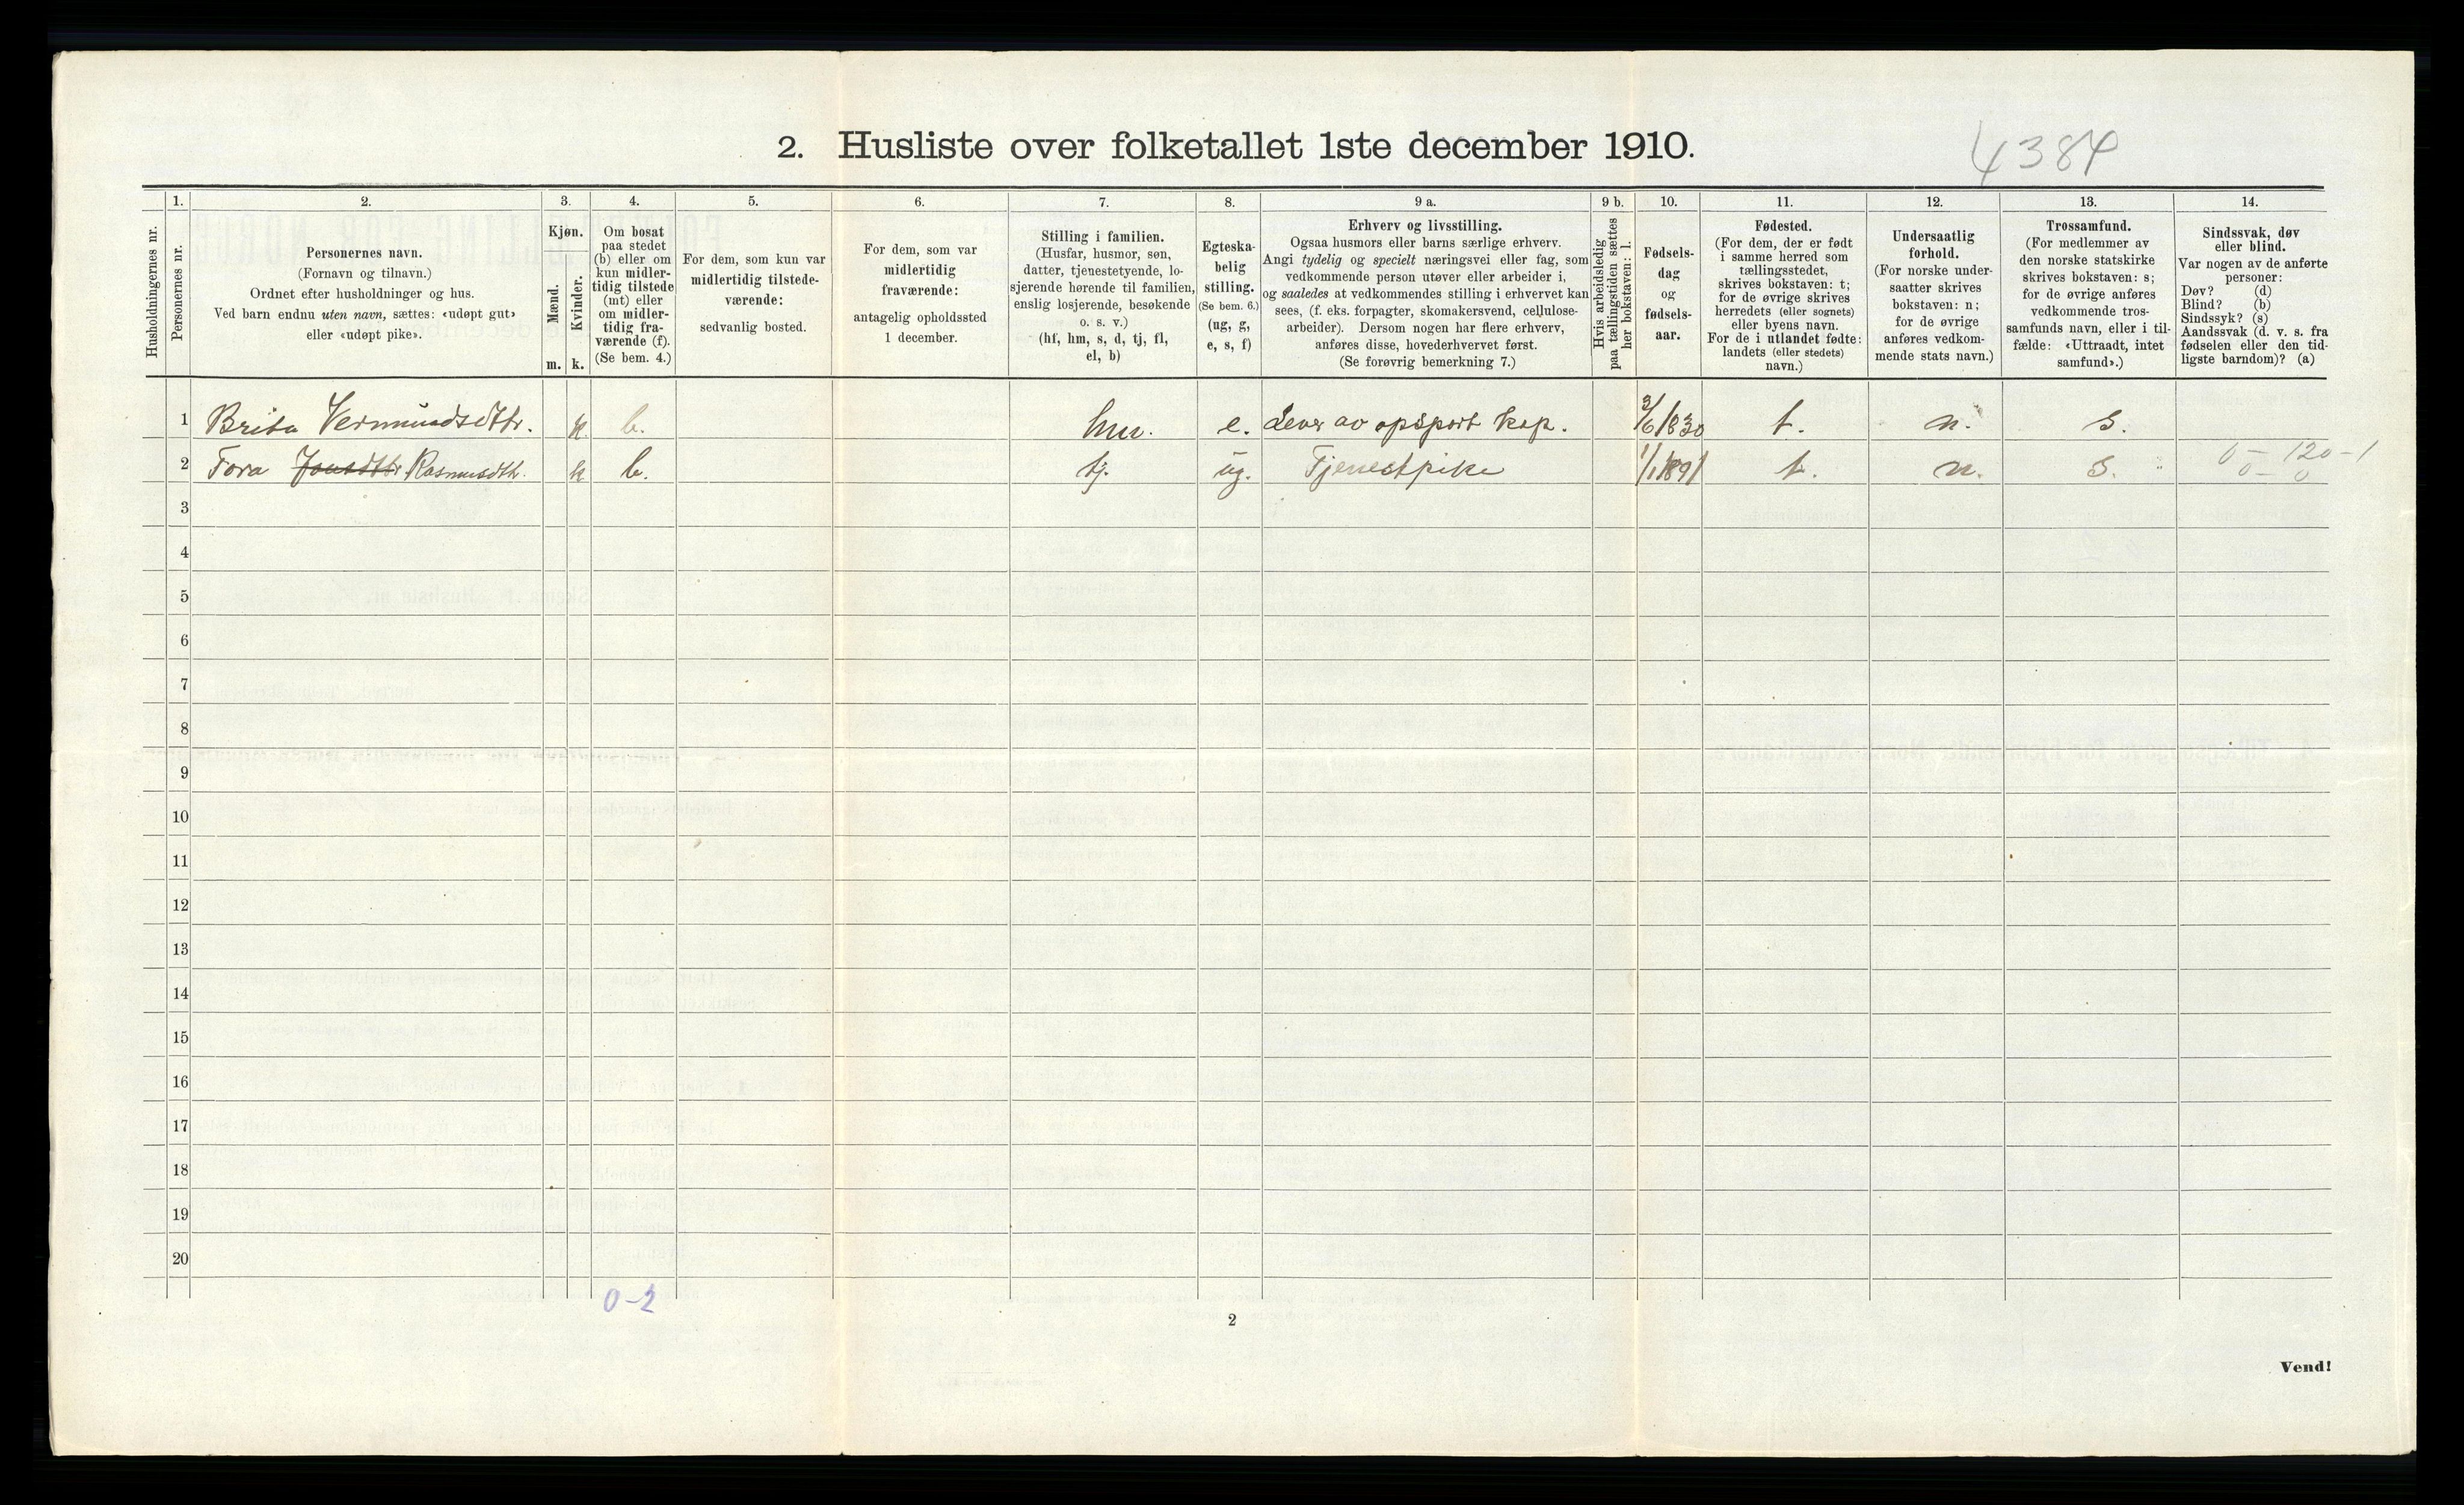 2. Husliste over folketallet 1ste december 1910.
4384
Husholdningernes nr.
1.
Personernes nr.
2.
Personernes navn.
(Fornavn og tilnavn.)
Ordnet efter husholdninger og hus.
Ved barn endnu uten navn, sættes: «udøpt gut»
eller «udøpt pike».
3.
Kjøn.
Mænd.
Kvinder.
m. k.
4.
Om bosat
paa stedet
(b) eller om
kun midler-
tidig tilstede
(mt) eller
om midler-
tidig fra-
værende (f).
(Se bem. 4.)
5.
For dem, som kun var
midlertidig tilstede-
værende:
sedvanlig bosted.
6.
For dem, som var
midlertidig
fraværende:
antagelig opholdssted
1 december.
7.
Stilling i familien.
(Husfar, husmor, søn,
datter, tjenestetyende, lo-
sjerende hørende til familien,
enslig losjerende, besøkende
o. s. v.)
(hf, hm, s, d, tj, fl,
el, b)
8.
Egteska-
belig
stilling.
(Se bem. 6.)
(ug, g,
e, s, f)
9 a.
Erhverv og livsstilling.
Ogsaa husmors eller barns særlige erhverv.
Angi tydelig og specielt næringsvei eller fag, som
vedkommende person utøver eller arbeider i,
og saaledes at vedkommendes stilling i erhvervet kan
sees, (f. eks. forpagter, skomakersvend, cellulose-
arbeider). Dersom nogen har flere erhverv,
anføres disse, hovederhvervet først.
(Se forøvrig bemerkning 7.)
9 b.
Hvis arbeidsledig
paa tællingstiden sættes
her bokstaven: l.
10.
Fødsels-
dag
og
fødsels-
aar.
11.
Fødested.
(For dem, der er født
i samme herred som
tællingsstedet,
skrives bokstaven: t;
for de øvrige skrives
herredets (eller sognets)
eller byens navn.
For de i utlandet fødte:
landets (eller stedets)
navn.)
12.
Undersaatlig
forhold.
(For norske under-
saatter skrives
bokstaven: n;
for de øvrige
anføres vedkom-
mende stats navn.)
13.
Trossamfund.
(For medlemmer av
den norske statskirke
skrives bokstaven: s;
for de øvrige anføres
vedkommende tros-
samfunds navn, eller i til-
fælde: «Uttraadt, intet
samfund».)
14.
Sindssvak, døv
eller blind.
Var nogen av de anførte
personer:
Døv? (d)
Blind? (b)
Sindssyk? (s)
Aandssvak (d. v. s. fra
fødselen eller den tid-
ligste barndom)? (a)
1 Brita Vermundsdtr. k. b. hm. e. Lever av opspart kap. 3/6 1830 t. n. s.
2 Tora Jonsdtr Rasmusdtr. k b. tj. ug. Tjenestpike 1/1 1891 t. n. s. 0 – 120 – 1
0 – 0
3
4
5
6
7
8
9
10
11
12
13
14
15
16
17
18
19
20
0–2
2
Vend!